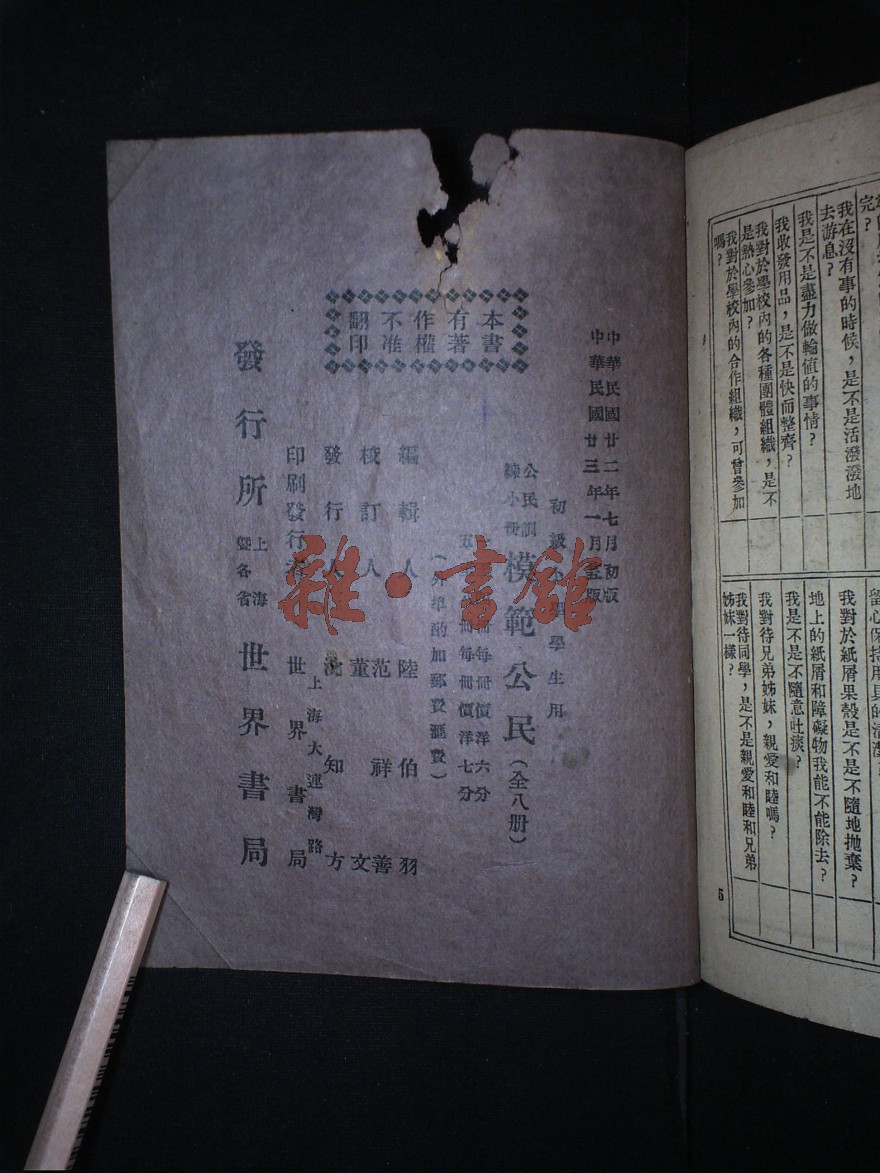 完?
我在沒有事的時候,是不是活潑潑地
去游息?
我是不是盡力做輪值的事情?
我收發用品,是不是快而整齊?
我對於學校內的各種團體組織,是不
是熱心參加?
我對於學校內的合作組織,可曾參加
嗎?
我對於紙屑果殼是不是不隨地拋棄?
地上的紙屑和障礙物我能不能除去?
我是不是不隨意吐淡?
我對待兄弟姊妹,親愛和睦嗎?
我對待同學,是不是親愛和睦和兄弟
姊妹一樣?
5
中華民國廿二年七月初版
中華民國廿三年一月 版
初級 學學生用
公民訓
練小冊
模範公民(全八册)
冊每冊價洋六分
五 冊每冊價洋七分
(外埠酌加郵費滙費)
本書
有著
作權
不准
翻印
編輯人 陸伯羽
校訂人 范祥善
董文
發行人 沈知方
印刷發行者 上海大連灣路
世界書局
發行所 上海
暨各省
世界書局
雜·書館